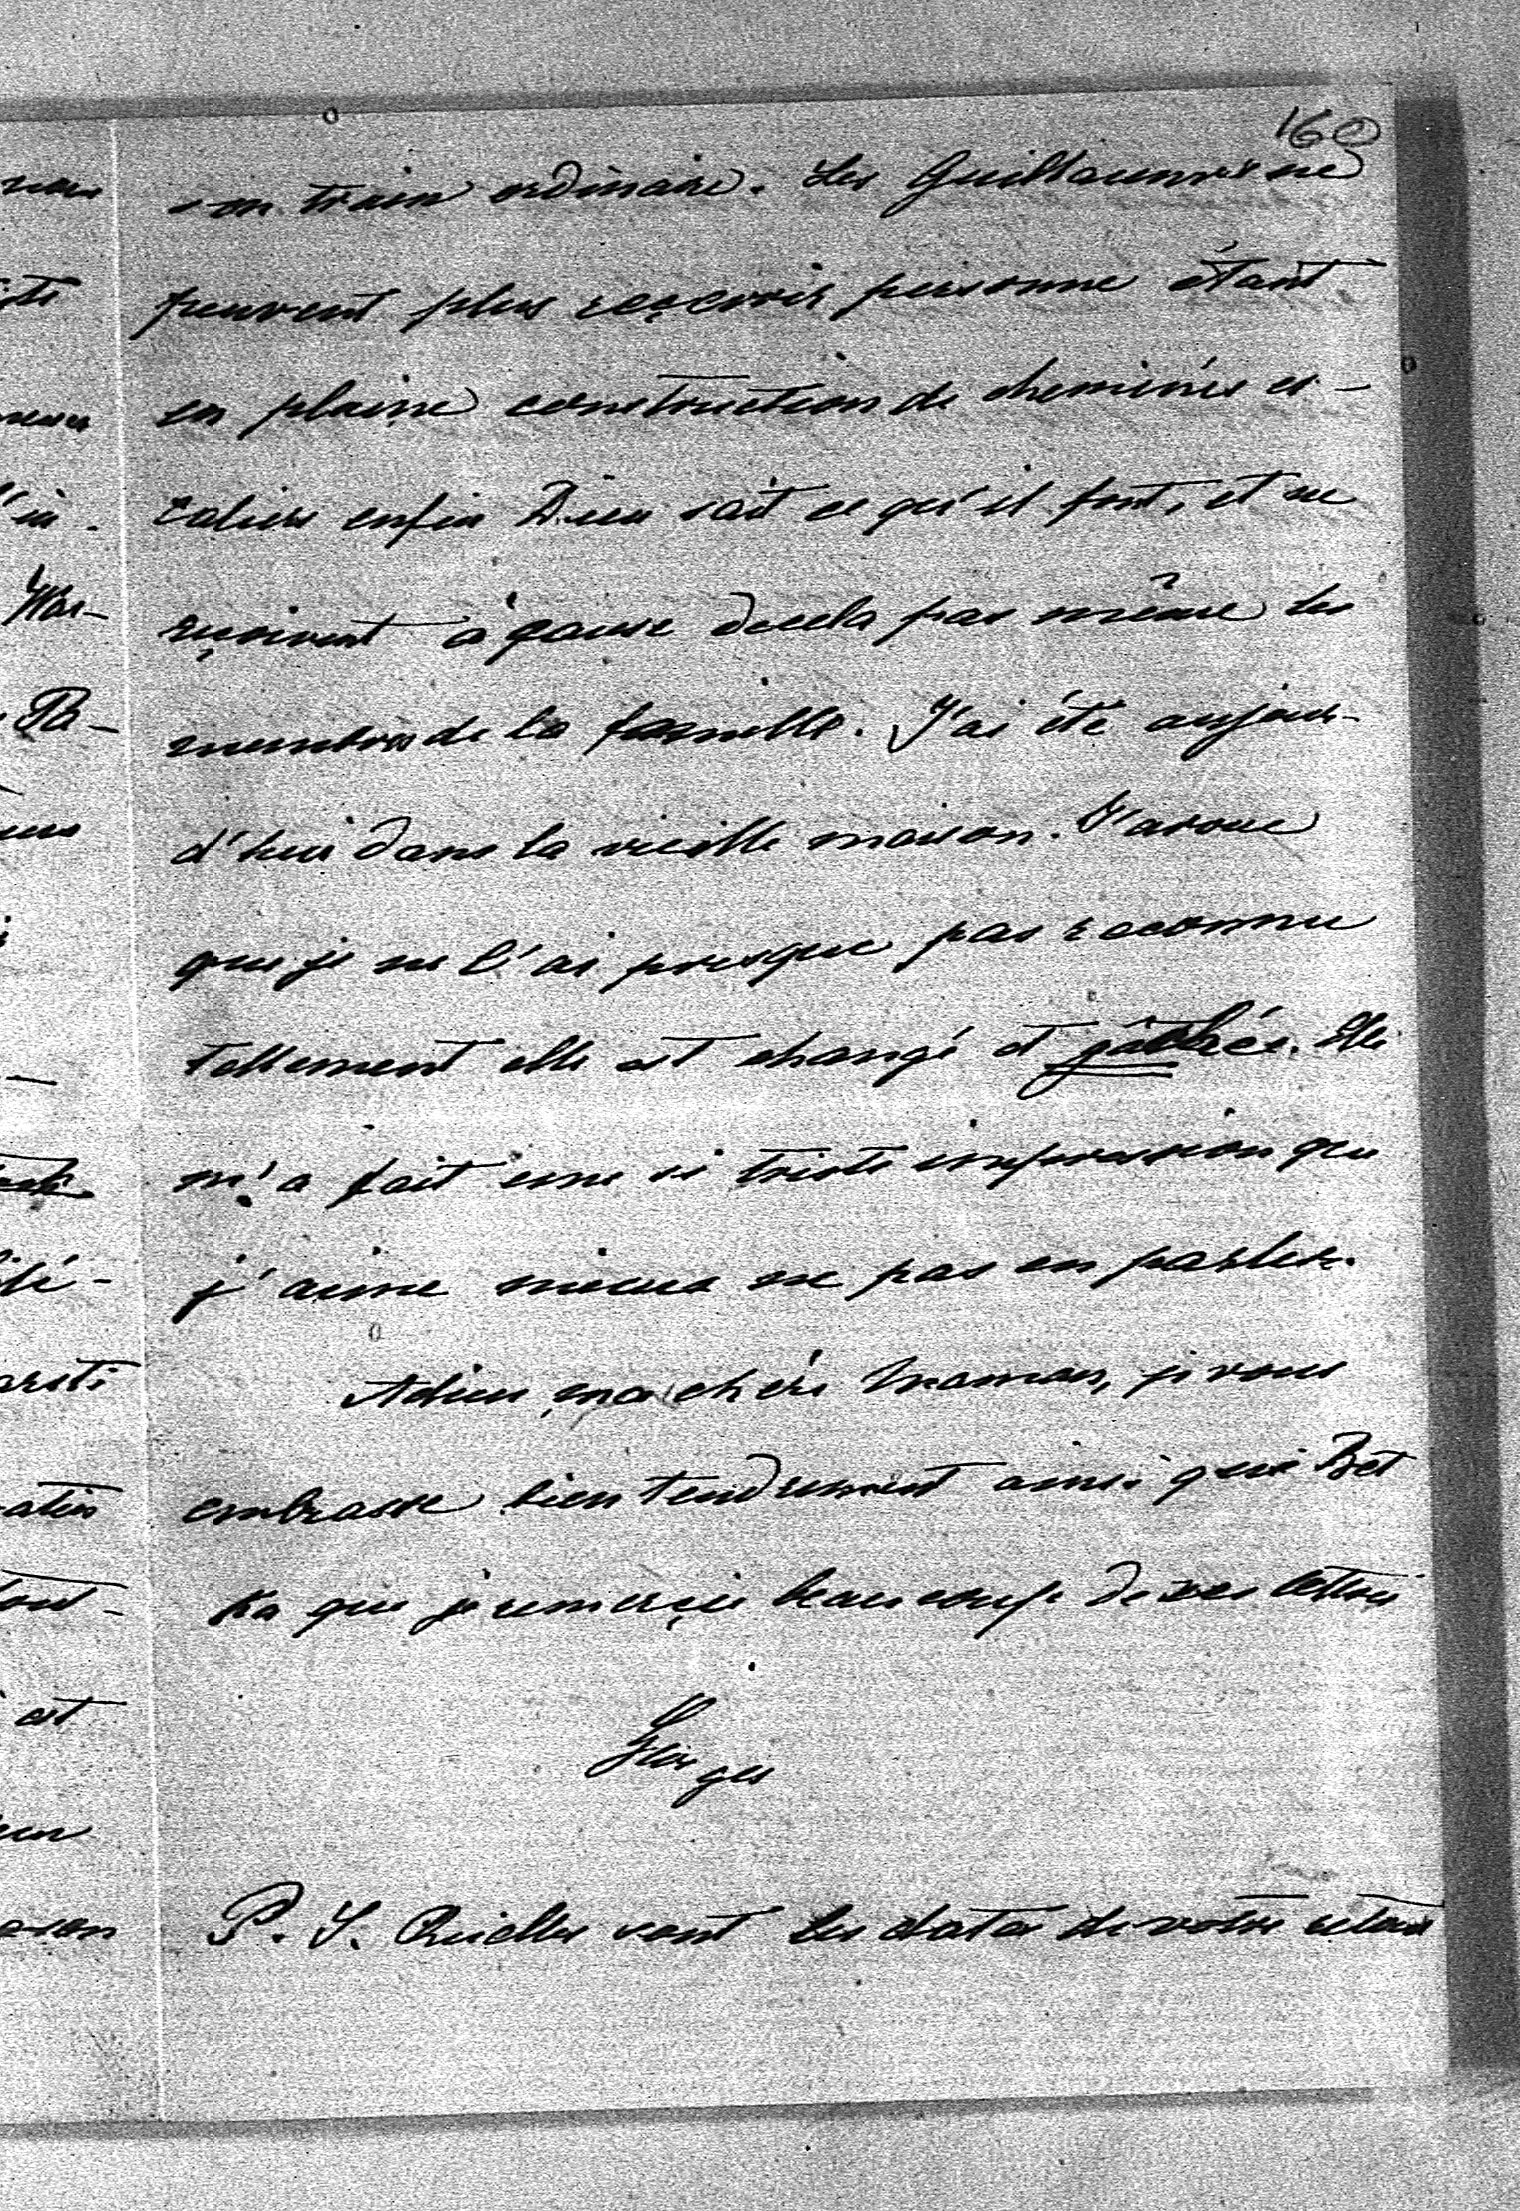 160
son train ordinaire. Les Guillaumes ne
peuvent plus reçevoir personne étant
en plaine construction de cheminés es-
caliers enfin Dieu sait ce qu'il font, et ne
reçoivent à cause de cela pas même les
membres de la famille. J'ai été aujour-
d'hui dans la vieille maison. J'avoue
que je ne l'ai presque pas reconnu
tellement elle est changé et gâthée. Elle
m'a fait une si triste impression que
j'aime mieux ne pas en parler.
Adieu, ma chère Maman, je vous
embrasse bien tendrement ainsi que Bet
ka que je remerçie beaucoup de ses lettres
Georges
P. S. Quelles sont les dates de votre retour
nous
Wär-
est